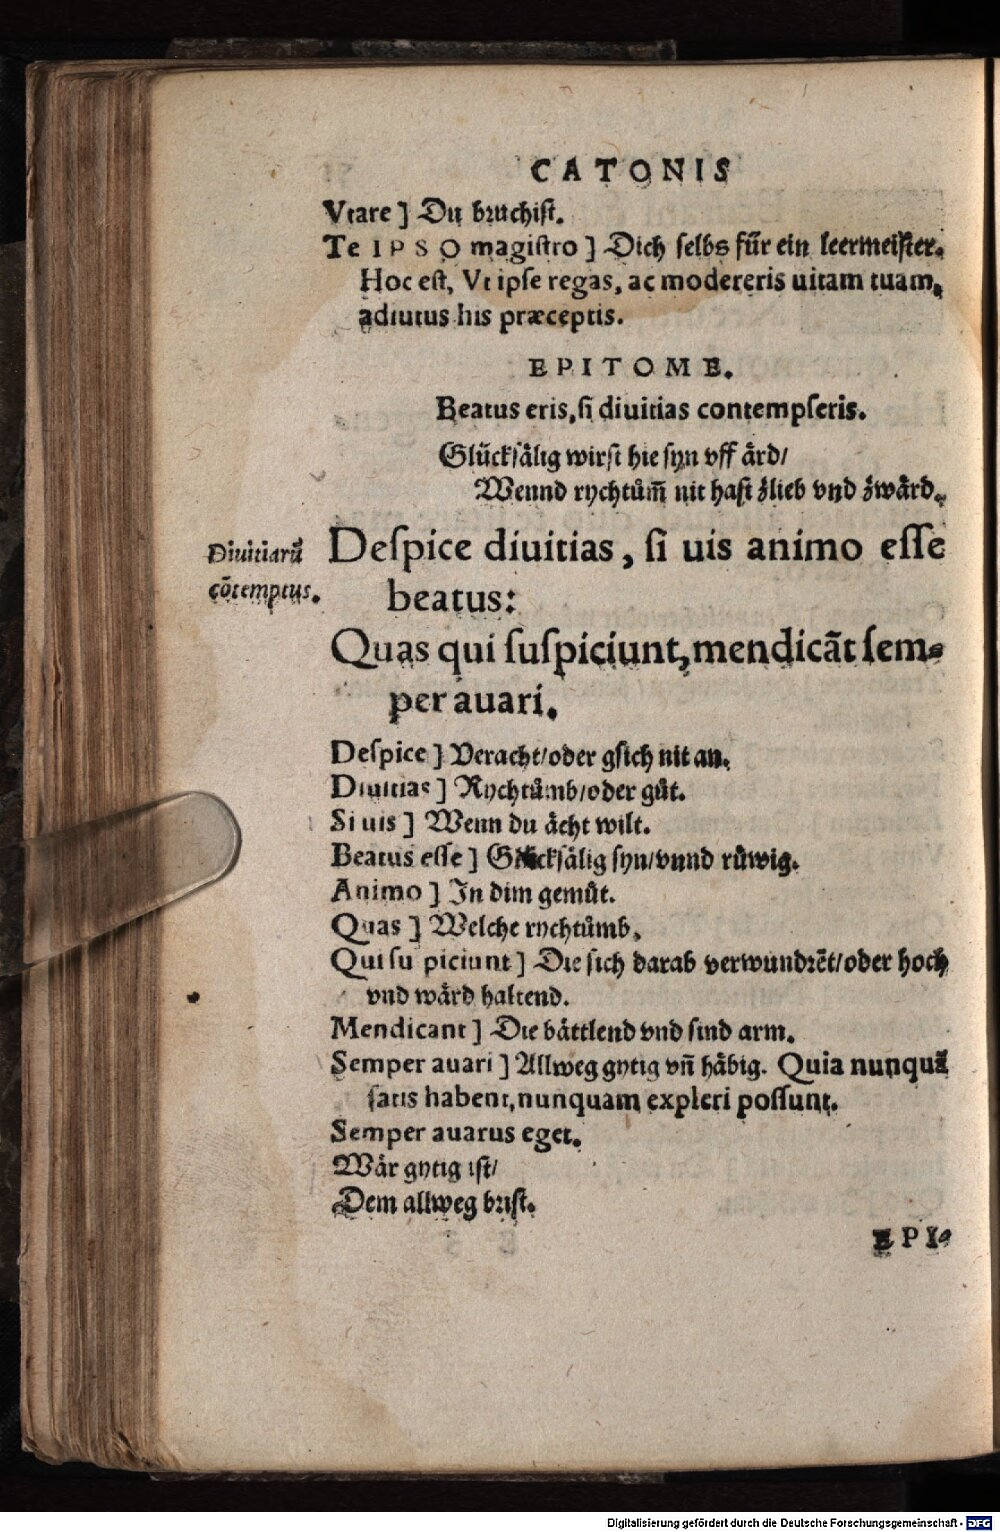 CATONIS
Vtare ] Du bruchist.
Te IPSO magistro ] Dich selbs für ein leermeister.
Hoc est, Vt ipse regas, ac modereris uitam tuam,
adiutus his præceptis.
EPITOME.
Beatus eris, si diuitias contempseris.
Glücksälig wirst hie syn vff ärd/
Wennd rychtům̃ nit hast zlieb vnd zwärd.
Diuitiarũ
cõtemptus.
Despice diuitias, si uis animo esse
beatus:
Quas qui suspiciunt, mendicãt sem-
per auari.
Despice ] Veracht/oder gsich nit an.
Diuitias ] Rychtůmb/oder gůt.
Si uis ] Wenn du ächt wilt.
Beatus esse ] Glücksälig syn/vnnd růwig.
Animo ] In dim gemůt.
Quas ] Welche rychtůmb.
Qui suspiciunt ] Die sich darab verwundrẽt/oder hoch
vnd wärd haltend.
Mendicant ] Die bättlend vnd sind arm.
Semper auari ] Allweg gytig vñ häbig. Quia nunquã
satis habent, nunquam expleri possunt.
Semper auarus eget.
Wär gytig ist/
Dem allweg brist.
EPI-
Digitalisierung gefördert durch die Deutsche Forschungsgemeinschaft - DFG